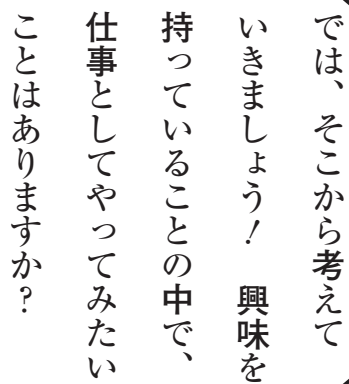 では、そこから考えて
いきましょう！　興味を
持っていることの中で、
仕事としてやってみたい
ことはありますか？